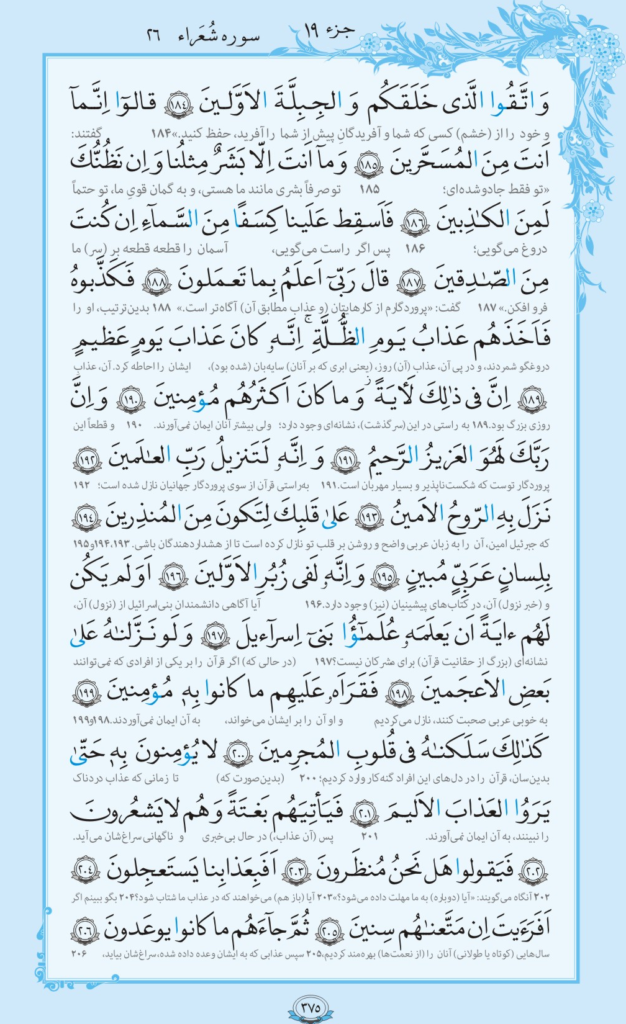 جزء ۱۹
سوره شُعَراء ۲۶
وَ اتَّقُوا الَّذی خَلَقَکُم وَ الجِبِلَّةَ الاَوَّلینَ ﴿۱۸۴﴾ قالوٓا اِنَّمآ
و خود را از (خشم) کسی که شما و آفریدگانِ پیش از شما را آفرید، حفظ کنید.» ۱۸۴ گفتند:
اَنتَ مِنَ المُسَحَّرینَ ﴿۱۸۵﴾ وَ مآ اَنتَ اِلّا بَشَرٌ مِثلُنا وَ اِن نَظُنُّکَ
«تو فقط جادو شده‌ای؛ ۱۸۵ تو صرفاً بشری مانند ما هستی، و به گمان قویِ ما، تو حتماً
لَمِنَ الکـٰذِبینَ ﴿۱۸۶﴾ فَاَسقِط عَلَینا کِسَفًا مِنَ السَّمآءِ اِن کُنتَ
دروغ می‌گویی؛ ۱۸۶ پس اگر راست می‌گویی، آسمان را قطعه قطعه بر (سرِ) ما
مِنَ الصّـٰدِقینَ ﴿۱۸۷﴾ قالَ رَبّیٓ اَعلَمُ بِما تَعمَلونَ ﴿۱۸۸﴾ فَکَذَّبوهُ
فرو افکن.» ۱۸۷ گفت: «پروردگارم از کارهایتان (و عذاب مطابق آن) آگاه‌تر است.» ۱۸۸ بدین‌ترتیب، او را
فَاَخَذَهُم عَذابُ یَومِ الظُّلَّةِ ۚ اِنَّهٗ کانَ عَذابَ یَومٍ عَظیمٍ
دروغگو شمردند، و در پی آن، عذابِ (آن) روزِ، (یعنی ابری که بر آنان) سایه‌بان (شده بود)، ایشان را احاطه کرد. آن، عذاب
﴿۱۸۹﴾ اِنَّ فی ذٰلِکَ لَأیَةً ۖ وَ ما کانَ اَکثَرُهُم مُؤمِنینَ ﴿۱۹۰﴾ وَ اِنَّ
روزی بزرگ بود. ۱۸۹ به راستی در این (سرگذشت)، نشانه‌ای وجود دارد؛ ولی بیشتر آنان ایمان نمی‌آورند. ۱۹۰ و قطعاً این
رَبَّکَ لَهُوَ العَزیزُ الرَّحیمُ ﴿۱۹۱﴾ وَ اِنَّهٗ لَتَنزیلُ رَبِّ العـٰلَمینَ ﴿۱۹۲﴾
پروردگار توست که شکست‌ناپذیر و بسیار مهربان است. ۱۹۱ به‌راستی قرآن از سوی پروردگار جهانیان نازل شده است؛ ۱۹۲
نَزَلَ بِهِ الرّوحُ الاَمینُ ﴿۱۹۳﴾ عَلیٰ قَلبِکَ لِتَکونَ مِنَ المُنذِرینَ ﴿۱۹۴﴾
که جبرئیل امین، آن را به زبان عربی واضح و روشن بر قلب تو نازل کرده است تا از هشداردهندگان باشی. ۱۹۳، ۱۹۴ و ۱۹۵
بِلِسانٍ عَرَبِیٍّ مُبینٍ ﴿۱۹۵﴾ وَ اِنَّهٗ لَفی زُبُرِ الاَوَّلینَ ﴿۱۹۶﴾ اَوَ لَم یَکُن
و (خبر نزول) آن، در کتاب‌های پیشینیان (نیز) وجود دارد. ۱۹۶ آیا آگاهی دانشمندان بنی‌اسرائیل از (نزول) آن،
لَهُم ءایَةً اَن یَعلَمَهٗ عُلَمـٰٓؤُا بَنیٓ اِسرآءیلَ ﴿۱۹۷﴾ وَ لَو نَزَّلنـٰهُ عَلیٰ
نشانه‌ای (بزرگ از حقانیت قرآن) برای مشرکان نیست؟ ۱۹۷ (در حالی که) اگر قرآن را بر یکی از افرادی که نمی‌توانند
بَعضِ الاَعجَمینَ ﴿۱۹۸﴾ فَقَرَاَهٗ عَلَیهِم ما کانوا بِهٖ مُؤمِنینَ ﴿۱۹۹﴾
به خوبی عربی صحبت کنند، نازل می‌کردیم و او آن را بر ایشان می‌خواند، به آن ایمان نمی‌آوردند. ۱۹۸ و ۱۹۹
کَذٰلِکَ سَلَکنـٰهُ فی قُلوبِ المُجرِمینَ ﴿۲۰۰﴾ لا یُؤمِنونَ بِهٖ حَتّیٰ
بدین‌سان، قرآن را در دل‌های این افراد گنه‌کار وارد کردیم؛ ۲۰۰ (بدین‌صورت که) تا زمانی که عذاب دردناک
یَرَوُا العَذابَ الاَلیمَ ﴿۲۰۱﴾ فَیَأتِیَهُم بَغتَةً وَ هُم لا یَشعُرونَ
را نبینند، به آن ایمان نمی‌آورند. ۲۰۱ پس (آن عذاب،) در حال بی‌خبری و ناگهانی سراغ‌شان می‌آید.
﴿۲۰۲﴾ فَیَقولوا هَل نَحنُ مُنظَرونَ ﴿۲۰۳﴾ اَفَبِعَذابِنا یَستَعجِلونَ ﴿۲۰۴﴾
۲۰۲ آنگاه می‌گویند: «آیا (دوباره) به ما مهلت داده می‌شود؟» ۲۰۳ آیا (باز هم) می‌خواهند که در عذاب ما شتاب شود؟ ۲۰۴ بگو ببینم اگر
اَفَرَءَیتَ اِن مَتَّعنـٰهُم سِنینَ ﴿۲۰۵﴾ ثُمَّ جآءَهُم ما کانوا یوعَدونَ ﴿۲۰۶﴾
سال‌هایی (کوتاه یا طولانی) آنان را (از نعمت‌ها) بهره‌مند کردیم، ۲۰۵ سپس عذابی که به ایشان وعده داده شده، سراغ‌شان بیاید، ۲۰۶
۳۷۵